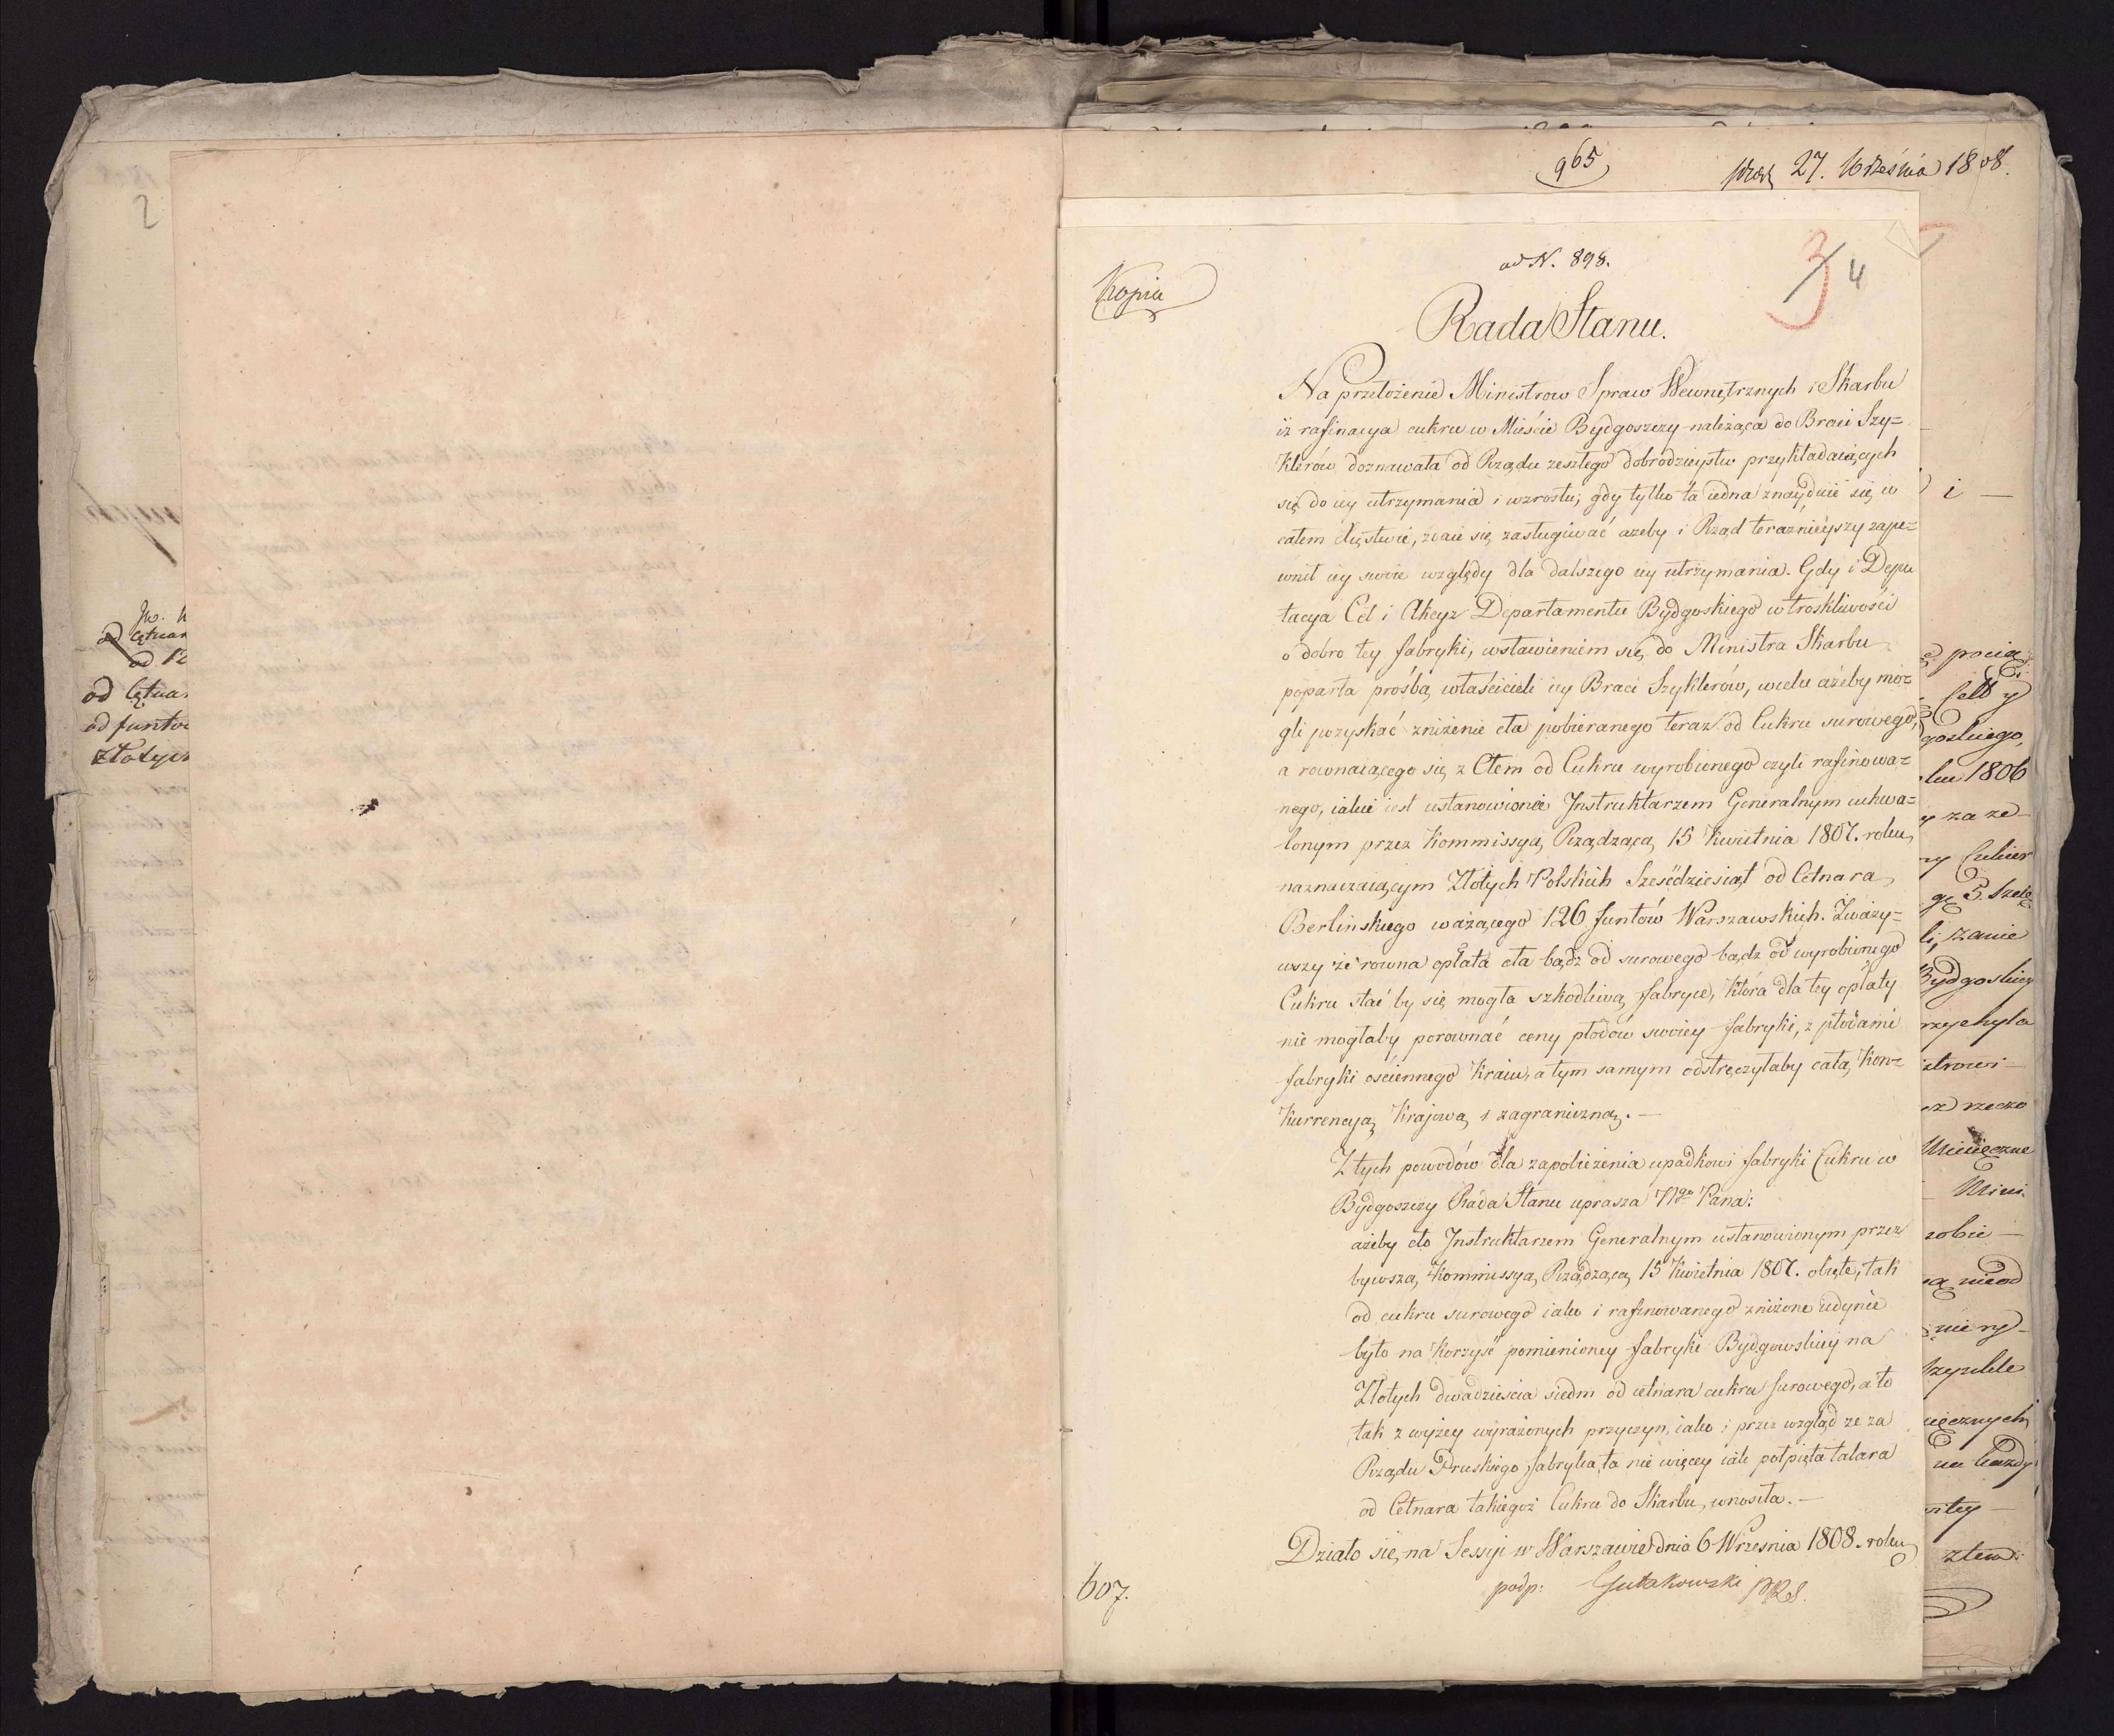 2
Jw.
od Cętnar
od 12
od Cętnar
od funtó
Złotych
965
27. Września 1808.
Kopia
ad N. 898.
3/4
Rada Stanu.
Na przełożenie Ministrow Spraw Wewnętrznych i Skarbu
iż rafinacya cukru w Mieście Bydgoszczy należąca do Braci Szy=
klerów doznawała od Rządu zeszłego dobrodzieystw przykładaiących
się do iey utrzymania i wzrostu; gdy tylko ta iedna znayduie się w
całem Xięstwie, zdaie się zasługiwać ażeby i Rząd teraźnieyszy zape=
wnił iey swoie względy dla dalszego iey utrzymania. Gdy i Depu
tacya Ceł i Akcyz Departamentu Bydgoskiego w troskliwości
o dobro tey fabryki, wstawieniem się do Ministra Skarbu
poparła prośbą właścicieli iey Braci Szyklerów, wielu ażeby mo=
gli pozyskać zniżenie cła pobieranego teraz od Cukru surowego,
a rownaiącego się z Cłem od Cukru wyrobionego czyli rafinowa=
nego, iakie iest ustanowione Instruktarzem Generalnym uchwa=
lonym przez Kommissyą Rządzącą 15 Kwietnia 1807. roku,
naznaczaiącym Złotych Polskich Sześćdziesiąt od Cetnara
Berlinskiego ważącego 126 funtów Warszawskich. Zważy=
wszy że rowna opłata cła bądź od surowego bądz od wyrobionego
Cukru stać by się mogła szkodliwą fabryce, która dla tey opłaty
nie mogłaby porownać ceny płodów swoiey fabryki, z płodami
fabryki ościennego Kraiu, a tym samym odstręczyłaby całą Kon=
kurrencyą Krajową i zagraniczną. —
Z tych powodów dla zapobieżenia upadkowi fabryki Cukru w
Bydgoszczy Rada Stanu uprasza Nge Pana:
ażeby cło Instruktarzem Generalnym ustanowionym przez
bywszą Kommissyą Rządzącą 15 Kwietnia 1807. obięte, tak
od cukru surowego iako i rafinowanego zniżone iedynie
było na korzyść pomienioney fabryki Bydgowskiey na
Złotych dwadzieścia siedm od cetnara cukru surowego, a to
tak z wyżey wyrażonych przyczyn, iako i przez wzgląd że za
Rządu Pruskiego fabryka ta nie więcey iak połpięta talara
od Cetnara takiegoż Cukru do Skarbu wnosiła. —
Działo się na Sessyi w Warszawie dnia 6 Września 1808. roku
podp: Gutakowski PRS.
607.
i —
pocią
Cell y
goskiego,
ku 1806
y za ze—
ny Cukier
gę 5. Szelą
li, zanie
Bydgoskiey
rzychyla
istrowi —
ez rzeczo
Mini.
sobie —
ą nieod
na każdy
stey —